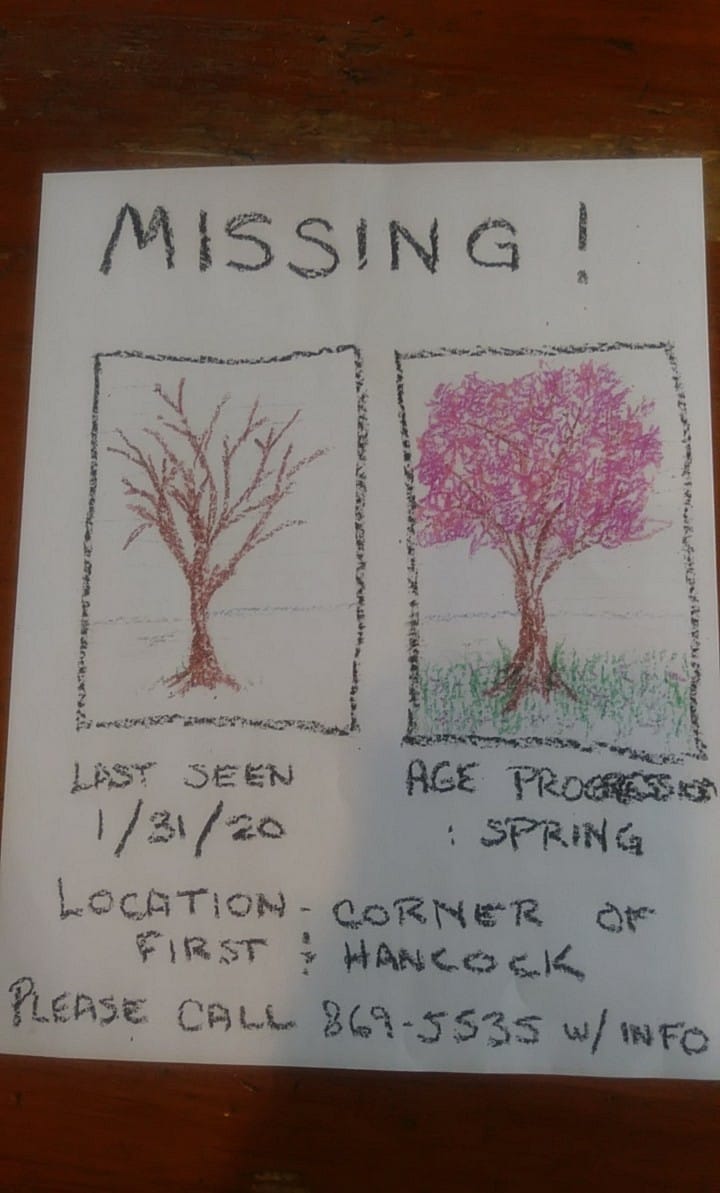 MISSING!
LAST SEEN
1/31/20
AGE PROGRESSION
: SPRING
LOCATION - CORNER OF
FIRST & HANCOCK
PLEASE CALL 869-5535 W/ INFO